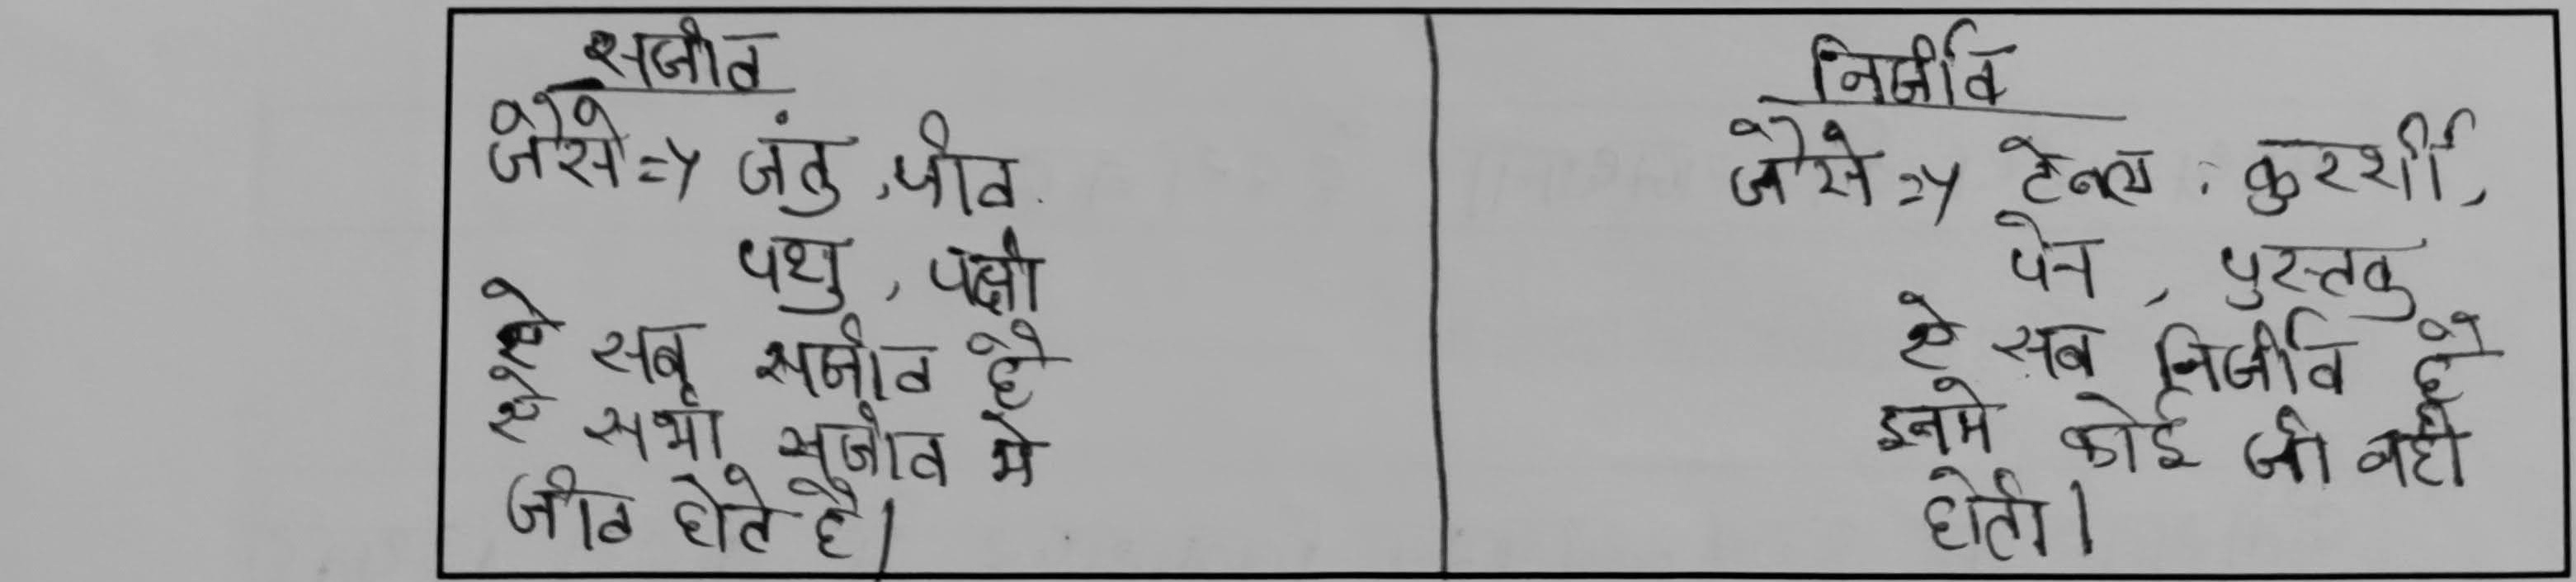 सजीव
जैसे => जंतु, जीव
पशु, पक्षी
ऐ सब सजीव है
ऐ सभी सजीव मे
जीव होते है।
निर्जीव
जैसे => टेबल, कुरर्शी,
पेन, पुस्तक
ऐ सब निर्जीव है
इनमे कोई जी नही
होता।